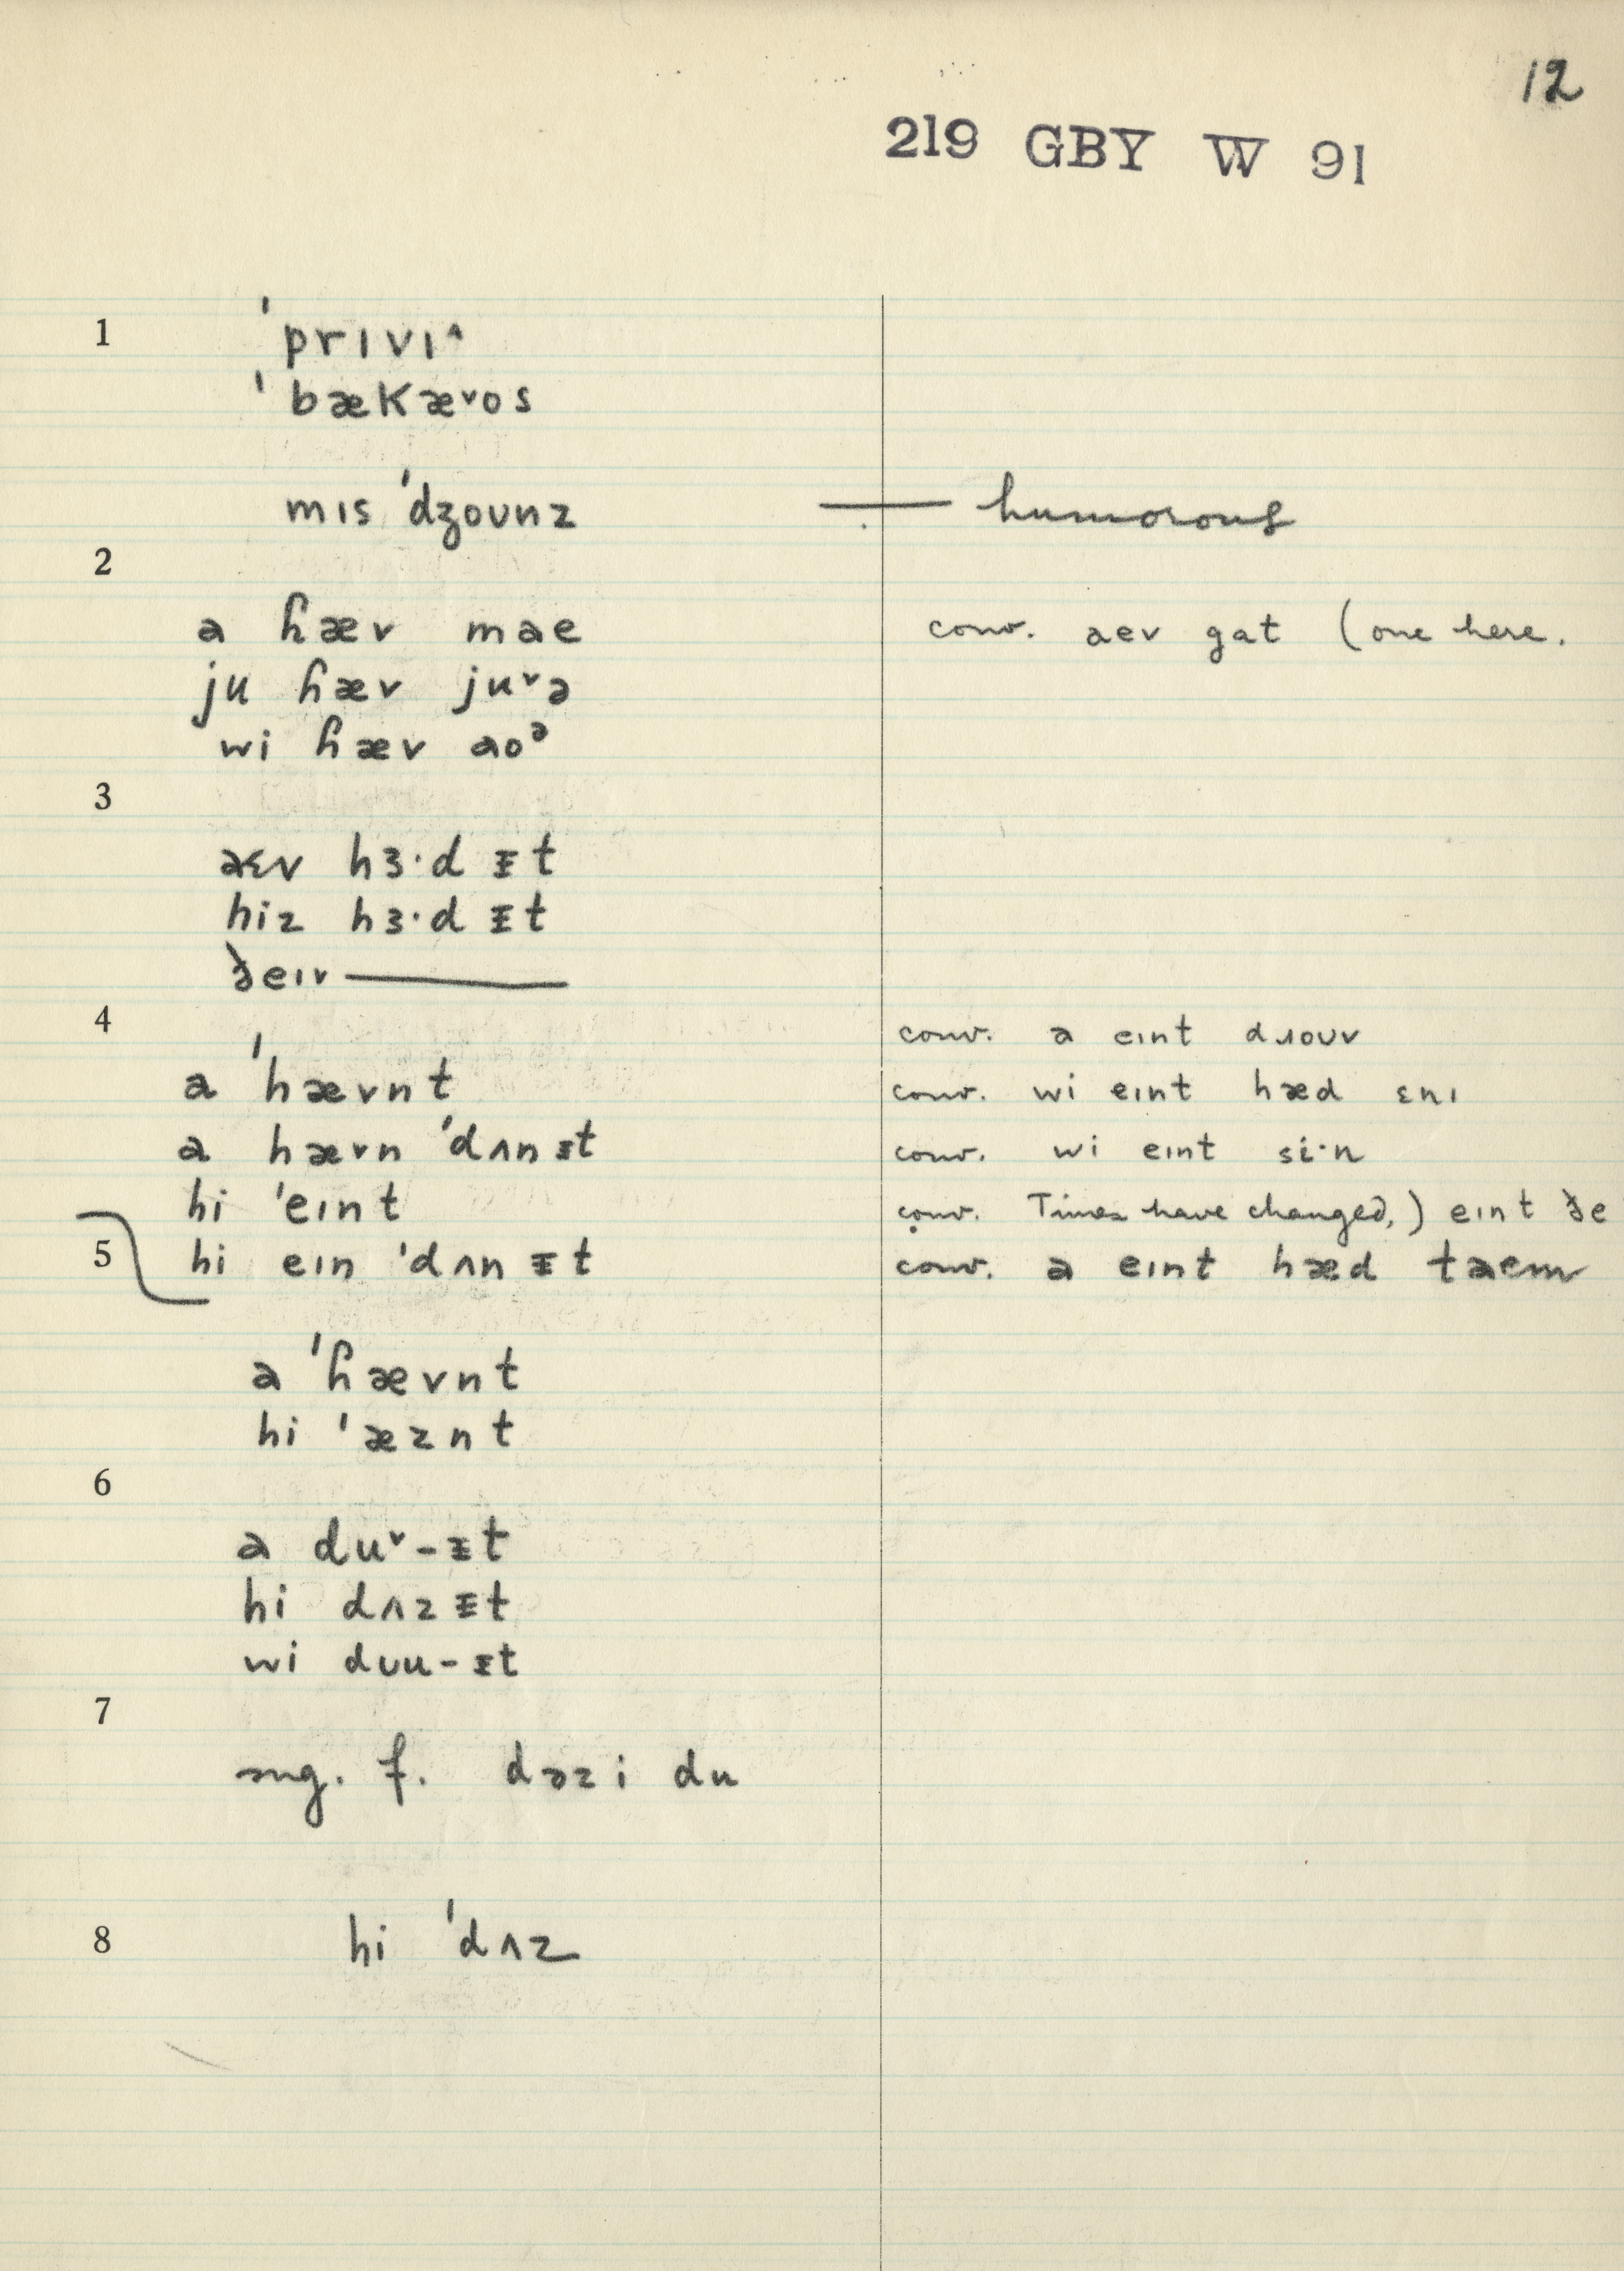 12
219 GBY W 91
1
ˈprɪvɪ^
ˈbækæᵛos
mɪs ˈdʒoʊnz — humorous
2
a ɦæv mae conv. aev gat (one here.
ju ɦæv juᵛə
wi ɦæv aoᵊ
3
aɛv hɜ·d ᵻt
hiz hɜ·d ᵻt
ðeɪv ———
4
conv. a eɪnt dɹoʊv
a ˈhævnt conv. wi eɪnt hæd ɛnɪ
a hævn ˈdʌn ᵻt conv. wi eɪnt si·n
hi ˈeɪnt conv. Times have changed,) eɪnt ðe
5 hi eɪn ˈdʌn ᵻt conv. a eɪnt hæd taem
a ˈɦævnt
hi ˈæznt
6
a duᵛ-ᵻt
hi dʌz ᵻt
wi dʊu-ᵻt
7
sug. f. dəz i du
8 hi ˈdʌz